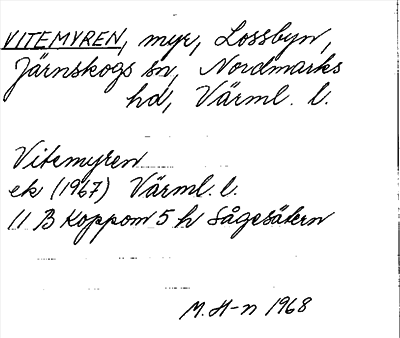 VITEMYREN, myr, Lossbyn,
Järnskogs sn, Nordmarks
hd, Värml. l.
Vitemyren
ek (1967) Värml. l.
11 B Koppom 5 h Sågesätern
M. H-n 1968